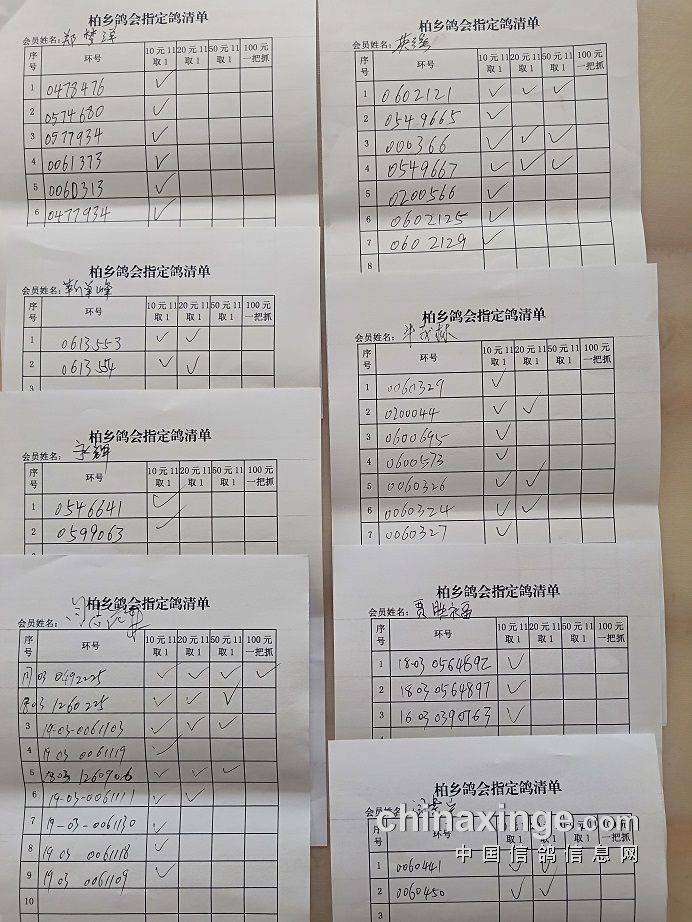 柏乡鸽会指定鸽清单
会员姓名：
序号 环号 10元11取1 20元11取1 50元11取1 100元一把抓
1 0478476 ✓
2 0574680 ✓
3 0577934 ✓
4 0061373 ✓
5 0060313 ✓
6 0477934 ✓
柏乡鸽会指定鸽清单
会员姓名：英强
序号 环号 10元11取1 20元11取1 50元11取1 100元一把抓
1 0602121 ✓ ✓ ✓
2 0549665 ✓
3 000366 ✓ ✓ ✓
4 0549667 ✓ ✓ ✓
5 0200566 ✓
6 0602125 ✓
7 0602129 ✓
8
柏乡鸽会指定鸽清单
会员姓名：靳军峰
序号 环号 10元11取1 20元11取1 50元11取1 100元一把抓
1 0613553 ✓ ✓
2 0613554 ✓ ✓
3
柏乡鸽会指定鸽清单
会员姓名：
序号 环号 10元11取1 20元11取1 50元11取1 100元一把抓
1 0060329 ✓
2 0200044 ✓ ✓
3 0600695 ✓
4 0600573 ✓
5 0060326 ✓ ✓
6 0060324 ✓ ✓
7 0060327 ✓
柏乡鸽会指定鸽清单
会员姓名：
序号 环号 10元11取1 20元11取1 50元11取1 100元一把抓
1 0546641 ✓
2 0599063 ✓
柏乡鸽会指定鸽清单
会员姓名：
序号 环号 10元11取1 20元11取1 50元11取1 100元一把抓
03 0492225 ✓ ✓ ✓ ✓
1803 1260225 ✓ ✓ ✓
3 19-03-0061103 ✓ ✓ ✓
4 1903 0061119 ✓
5 1803 1260906 ✓ ✓ ✓
6 19-03-0061111 ✓ ✓
7 19-03-0061130 ✓
8 1903 0061118 ✓
9 1903 0061109 ✓
10
柏乡鸽会指定鸽清单
会员姓名：
序号 环号 10元11取1 20元11取1 50元11取1 100元一把抓
1 18-03 0564892 ✓
2 1803 0564897 ✓
3 1603 0390763 ✓
柏乡鸽会指定鸽清单
会员姓名：
序号 环号 10元11取1 20元11取1 50元11取1 100元一把抓
1 0060441 ✓ ✓
2 0060450 ✓ ✓
3
chinaxinge.com
中国信鸽信息网